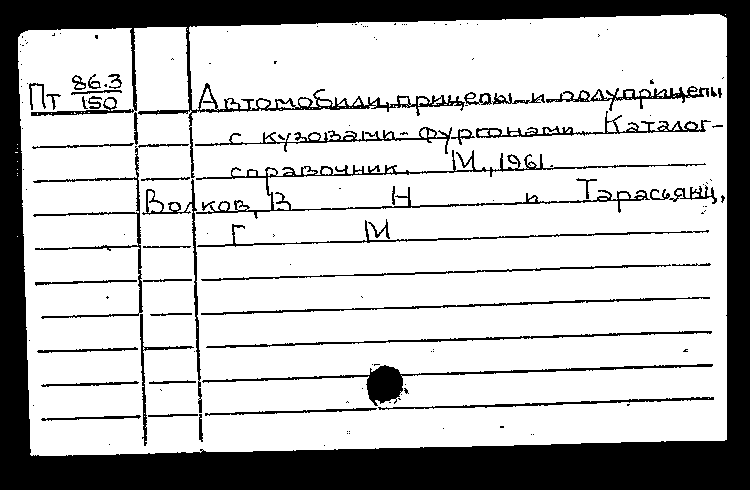 Пт 86.3/150 Автомобили, прицепы и полуприцепы
с кузовами-фургонами. Каталог-
справочник. М., 1961.
Волков, В Н и Тарасьянц,
Г М